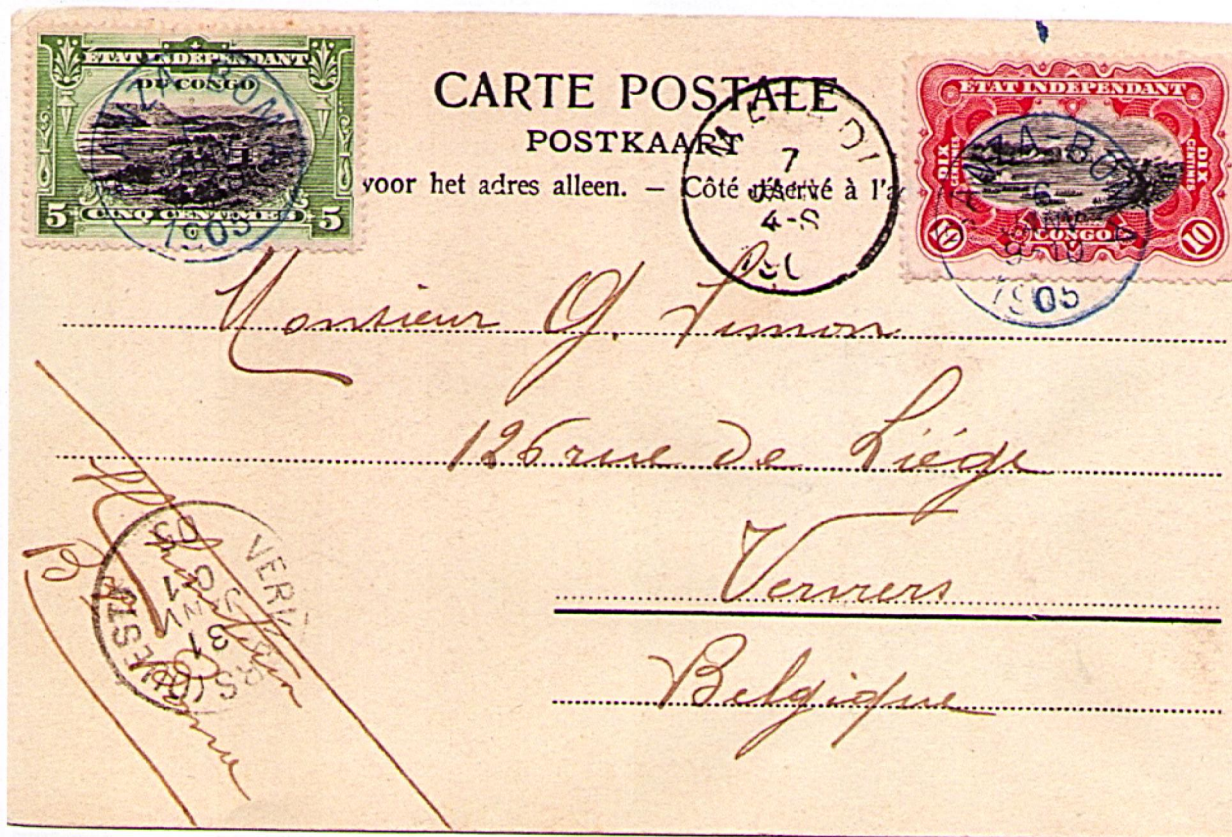 ETAT INDEPENDANT
DU CONGO
5 CINQ CENTIMES 5
1905
CARTE POSTALE
POSTKAART
voor het adres alleen. – Côté réservé à l'a
MATADI
7
JANV
4-S
ETAT INDEPENDANT
DIX CENTIMES
DIX CENTIMES
10 CONGO 10
6
JANV
9-10
1905
Monsieur G. Simon
126 rue de Liége
Verviers
Belgique
VERV RS (OUEST)
31
JANV